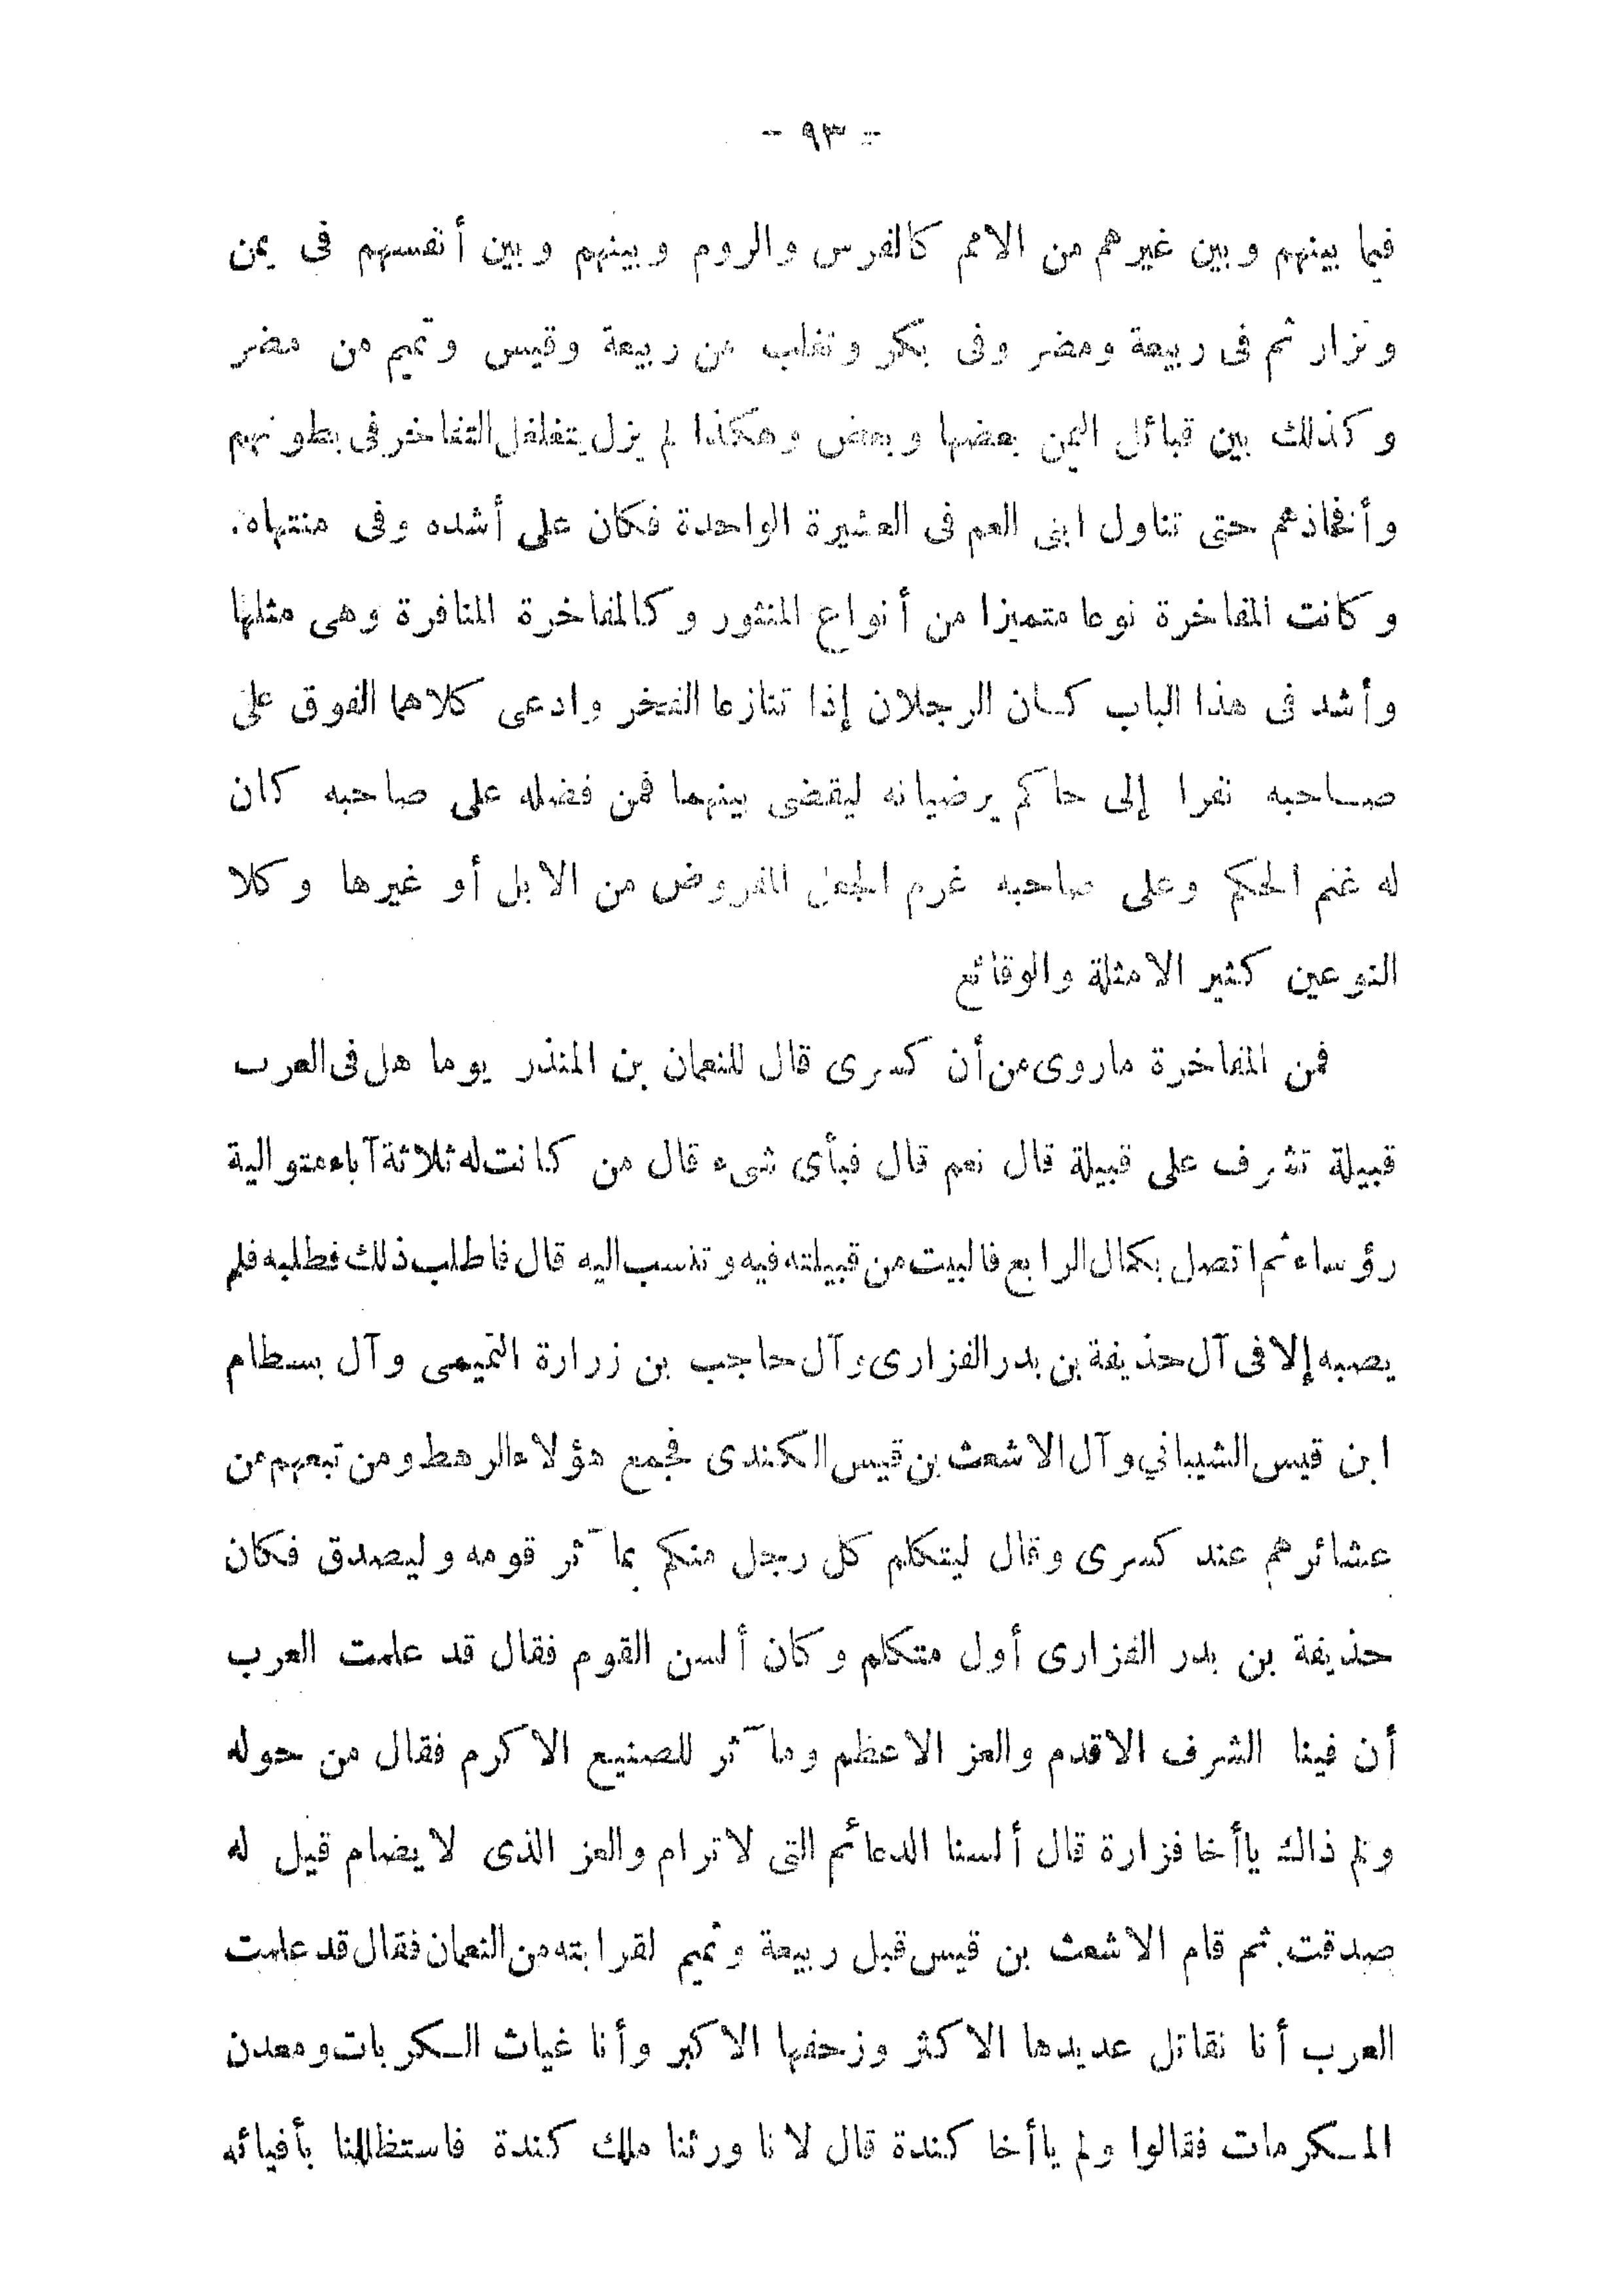 - ٩٣ -
فيما بينهم وبين غيرهم من الامم كالفرس والروم وبينهم وبين أنفسهم فى يمن
ونزار ثم فى ربيعة ومضر وفى بكر وتغلب من ربيعة وقيس وتميم من مضر
وكذلك بين قبائل اليمن بعضها وبعض وهكذا لم يزل يتغلغل التفاخر فى بطونهم
وأفخاذهم حتى تناول ابنى العم فى العشيرة الواحدة فكان على أشده وفى منتهاه.
وكانت المفاخرة نوعا متميزا من أنواع المنثور وكالمفاخرة المنافرة وهى مثلها
وأشد فى هذا الباب كان الرجلان إذا تنازعا الفخر وادعى كلاهما الفوق على
صاحبه نفرا إلى حاكم يرضيانه ليقضى بينهما فمن فضله على صاحبه كان
له غنم الحكم وعلى صاحبه غرم الجعل المفروض من الابل أو غيرها وكلا
النوعين كثير الامثلة والوقائع
فمن المفاخرة ماروى من أن كسرى قال للنعمان بن المنذر يوما هل فى العرب
قبيلة تشرف على قبيلة قال نعم قال فبأى شىء قال من كانت له ثلاثة آباء متوالية
رؤساء ثم اتصل بكمال الرابع فالبيت من قبيلته فيه وتنسب اليه قال فاطلب ذلك فطلبه فلم
يصبه إلا فى آل حذيفة بن بدر الفزارى وآل حاجب بن زرارة التميمى وآل بسطام
ابن قيس الشيباني وآل الاشعث بن قيس الكندى فجمع هؤلاء الرهط ومن تبعهم من
عشائرهم عند كسرى وقال ليتكلم كل رجل منكم بمآثر قومه وليصدق فكان
حذيفة بن بدر الفزارى أول متكلم وكان ألسن القوم فقال قد علمت العرب
أن فينا الشرف الاقدم والعز الاعظم ومآثر للصنيع الاكرم فقال من حوله
ولم ذاك ياأخا فزارة قال ألسنا الدعائم التى لاترام والعز الذى لايضام قيل له
صدقت. ثم قام الاشعث بن قيس قبل ربيعة وتميم لقرابته من النعمان فقال قد علمت
العرب أنا نقاتل عديدها الاكثر وزحفها الاكبر وأنا غياث الكربات ومعدن
المكرمات فقالوا ولم ياأخا كندة قال لانا ورثنا ملك كندة فاستظللنا بأفيائه